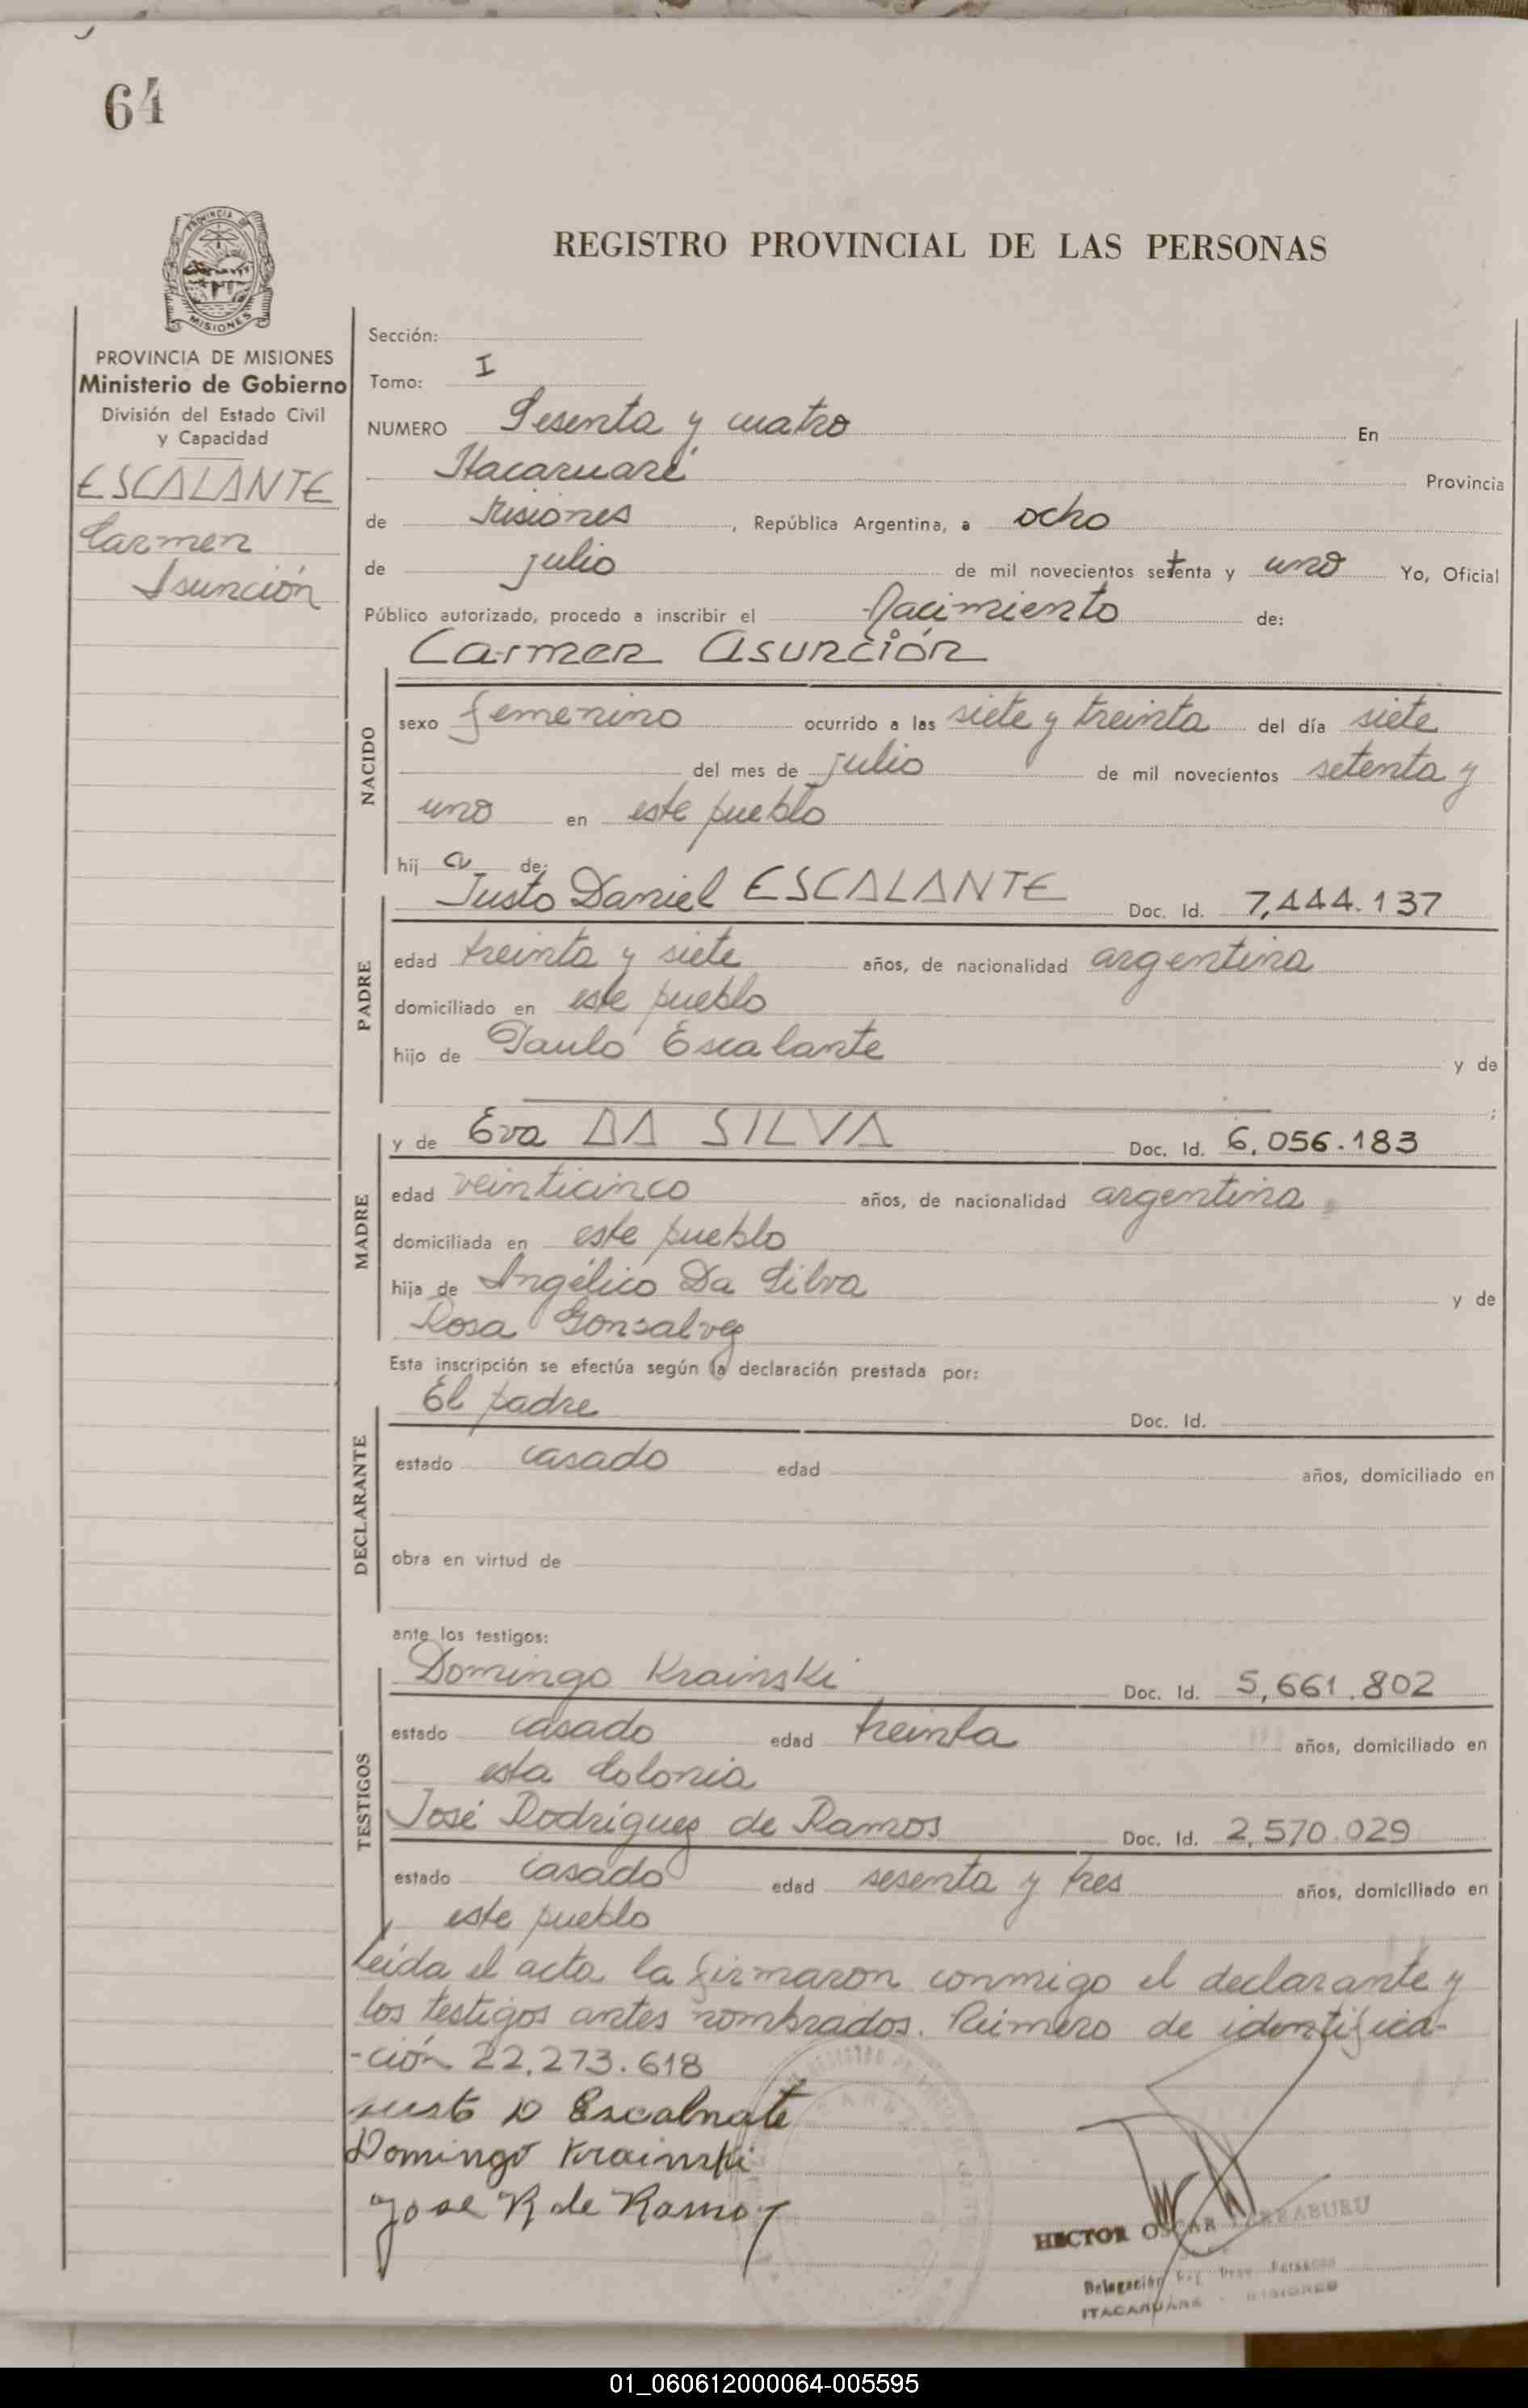 64
PROVINCIA DE
MISIONES
REGISTRO PROVINCIAL DE LAS PERSONAS
PROVINCIA DE MISIONES
Ministerio de Gobierno
División del Estado Civil
y Capacidad
ESCALANTE
Carmen
Asunción
Sección:
Tomo: I
NUMERO Sesenta y cuatro En
Itacaruaré Provincia
de Misiones, República Argentina, a ocho
de julio de mil novecientos setenta y uno Yo, Oficial
Público autorizado, procedo a inscribir el Nacimiento de:
Carmen Asunción
NACIDO
sexo femenino ocurrido a las siete y treinta del día siete
del mes de julio de mil novecientos setenta y
uno en este pueblo
hij a de:
Justo Daniel ESCALANTE Doc. Id. 7,444.137
PADRE
edad treinta y siete años, de nacionalidad argentina
domiciliado en este pueblo
hijo de Paulo Escalante y de
;
y de Eva DA SILVA Doc. Id. 6,056.183
MADRE
edad veinticinco años, de nacionalidad argentina
domiciliada en este pueblo
hija de Angélico Da Silva y de
Rosa Gonsalvez
Esta inscripción se efectúa según la declaración prestada por:
El padre Doc. Id.
DECLARANTE
estado casado edad años, domiciliado en
obra en virtud de
ante los testigos:
Domingo Krainski Doc. Id. 5,661.802
TESTIGOS
estado casado edad treinta años, domiciliado en
esta Colonia
José Rodriguez de Ramos Doc. Id. 2,570.029
estado casado edad sesenta y tres años, domiciliado en
este pueblo
Leída el acta la firmaron conmigo el declarante y
los testigos antes nombrados. Número de identifica-
-ción 22.273.618
Justo D Escalnate
Domingo Krainski
Jose R de Ramos
HECTOR OSCAR
Delegación Reg. Prov. Personas
ITACARUARE - MISIONES
01_060612000064-005595